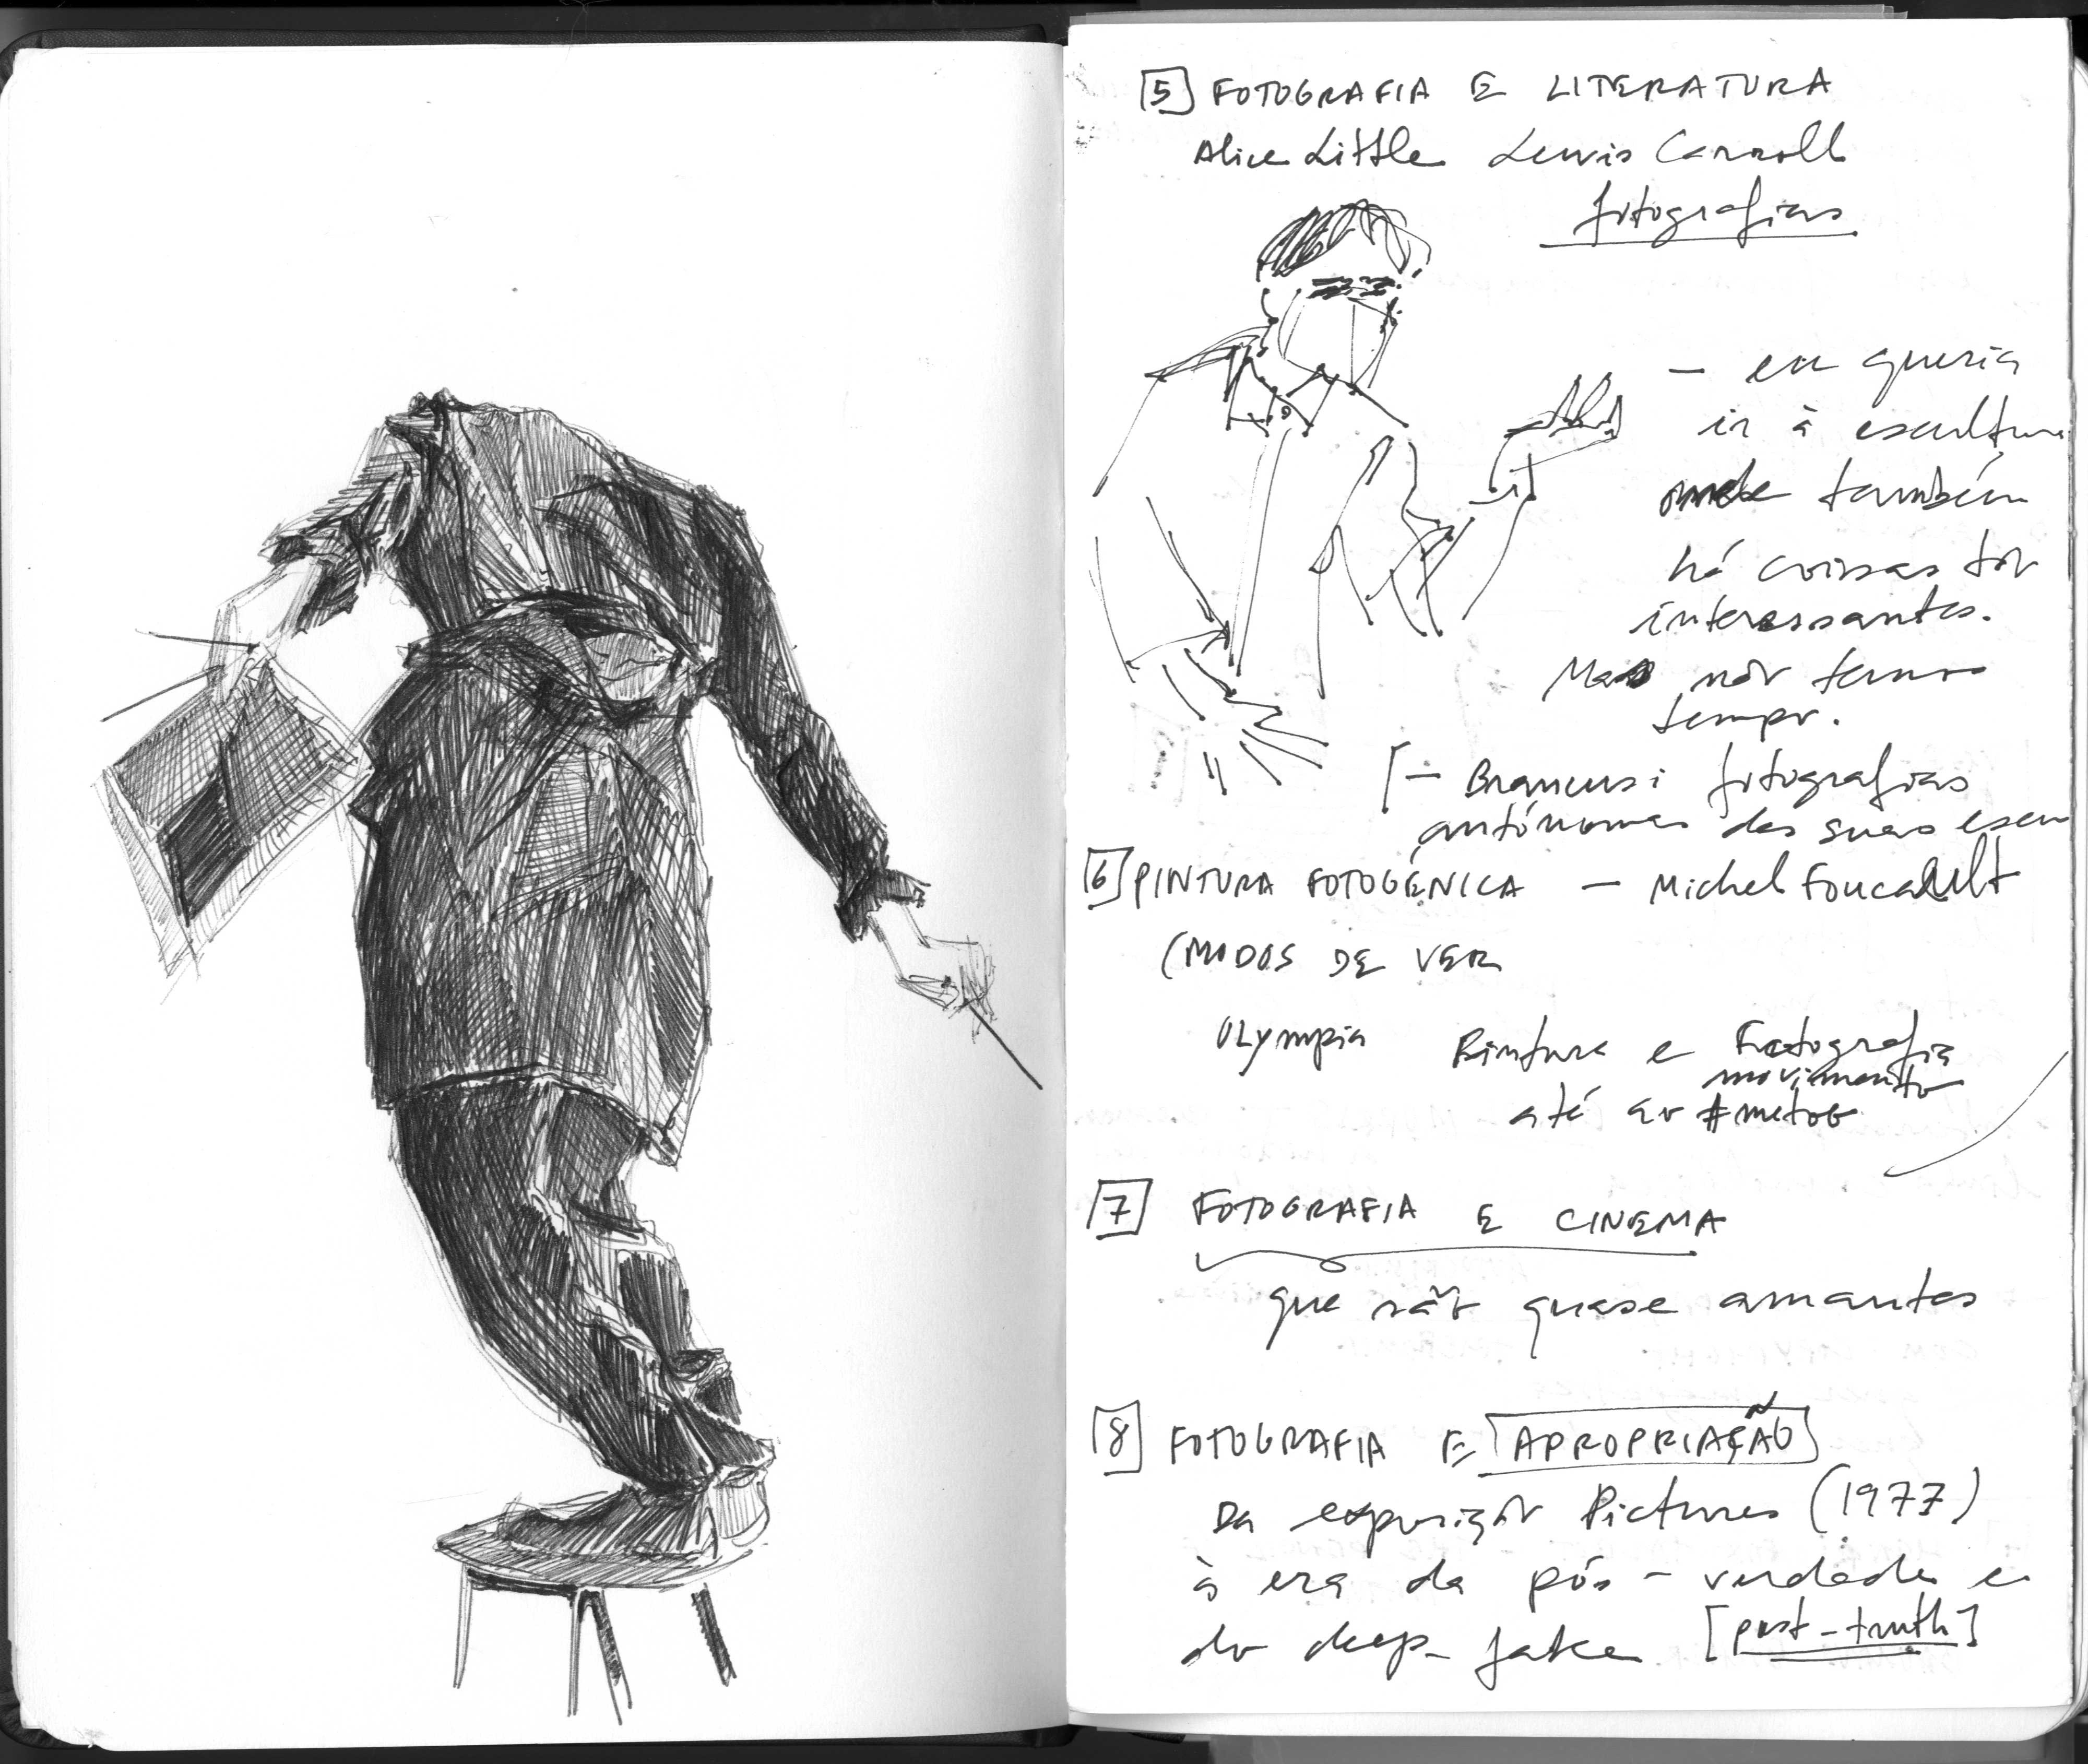 5 FOTOGRAFIA E LITERATURA
Alice Little Lewis Carroll
fotografias
– eu queria
ir à escultura
onde também
há coisas tão
interessantes.
Mas não temos
tempo.
[– Brancusi fotografias
autónomas das suas escu
6 PINTURA FOTOGÉNICA – Michel Foucault
(MODOS DE VER
OLympia Pintura e Fotografia
movimento
até ao #metoo
7 FOTOGRAFIA E CINEMA
que são quase amantes
8 FOTOGRAFIA E APROPRIAÇÃO
Da exposição Pictures (1977)
à era da pós-verdade e
do deep-fake [post-truth]